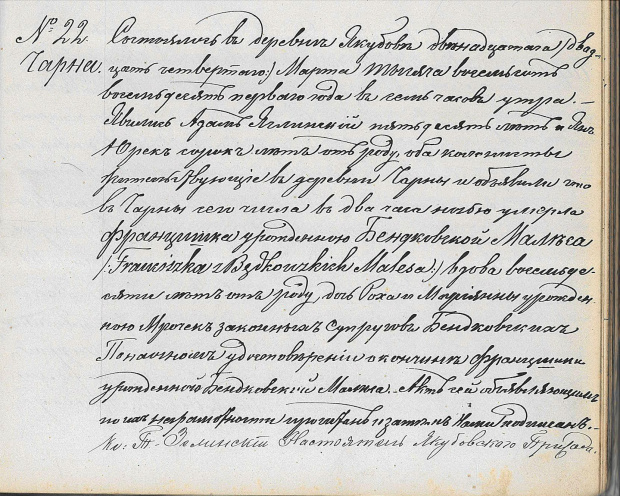 № 22.
Чарна.
Состоялось въ деревнѣ Якубовѣ двѣнадцатаго /двад-
цать четвертаго:/ Марта тысяча восемьсотъ
восемьдесятъ перваго года въ семь часовъ утра. —
Явились Адамъ Яглинскій пятьдесятъ лѣтъ и Янъ
Юрекъ сорокъ лѣтъ отъ роду, оба колонисты
жительствующіе въ деревни Чарны и объявили что
въ Чарны сего числа въ два часа ночью умерла
Францишка урожденною Бендковской Малѣса
/:Franciszka z Będkowskich Malesa:/ вдова восемьде-
сяти лѣтъ отъ роду, дочь Роха и Маріянны урожден-
ною Мрочекъ законныхъ супруговъ Бендковскихъ
По наочномъ удостовѣреніи о кончинѣ Францишки
урожденной Бендковскій Малѣса. Актъ сей объявляющимъ
по ихъ неграмотности прочитанъ и затѣмъ Нами подписанъ. —
Кс: Т. Зелинскій Настоятель Якубовскаго Прихода.